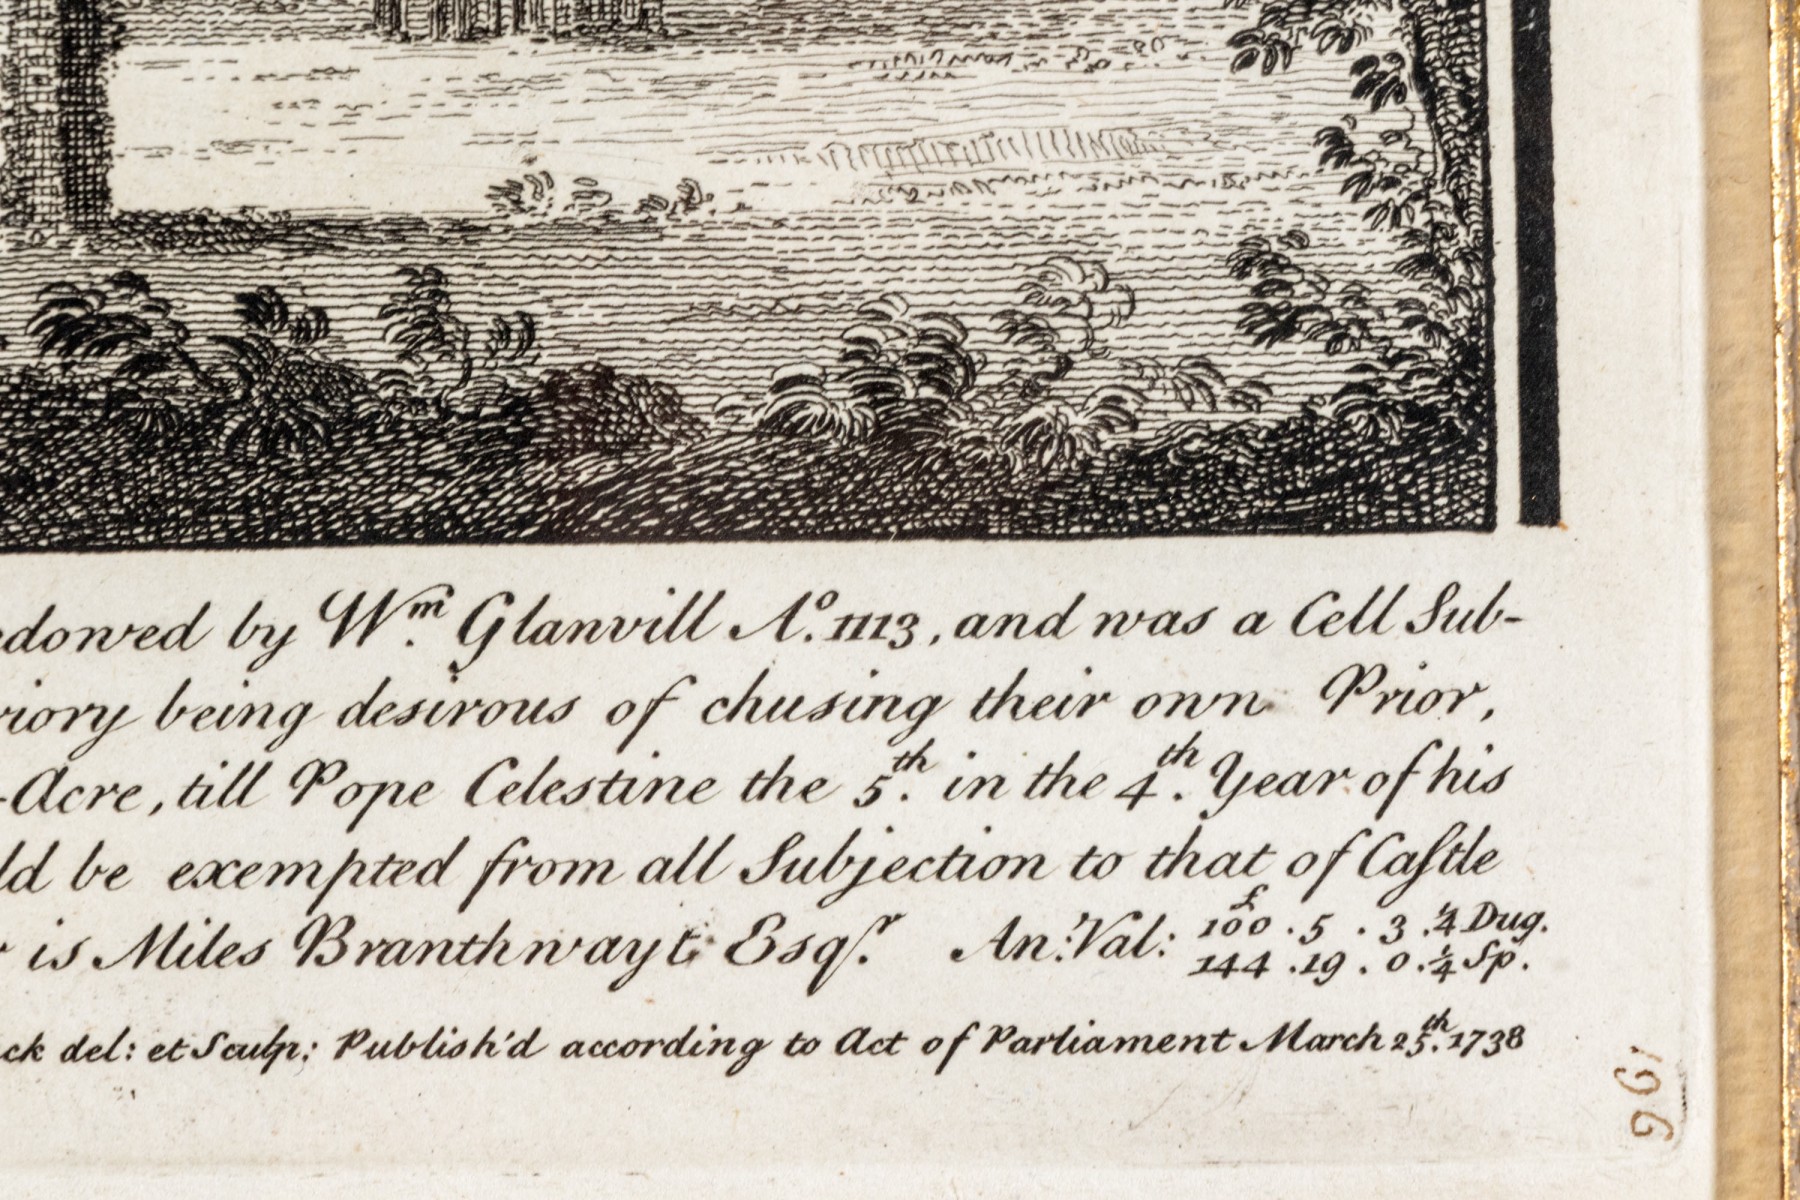 edowed by Wm. Glanvill Ao. 1113, and was a Cell Sub-
riory being desirous of chusing their own Prior,
-Acre, till Pope Celestine the 5th. in the 4th. Year of his
ld be exempted from all Subjection to that of Caſtle
r is Miles Branthwayt Esqr. An: Val: £ 100 . 5 . 3 . ¼ Dug.
144 . 19 . 0 . ¼ Sp.
ck del: et Sculp: Publish'd according to Act of Parliament March 25th. 1738
196